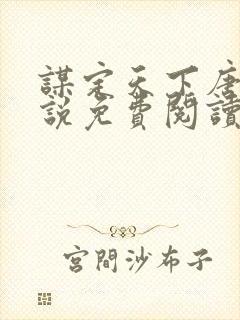 謀定天下唐
說免費閱讀
宮間沙布子